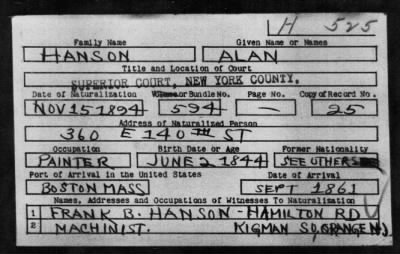 H 525
Family Name Given Name or Names
HANSON ALAN
Title and Location of Court
SUPERIOR COURT, NEW YORK COUNTY.
Date of Naturalization Volume or Bundle No. Page No. Copy of Record No.
NOV 15 1894 594 — 25
Address of Naturalized Person
360 E 140TH ST
Occupation Birth Date or Age Former Nationality
PAINTER JUNE 2 1844 SEE OTHERSIDE
Port of Arrival in the United States Date of Arrival
BOSTON MASS SEPT 1861
Names, Addresses and Occupations of Witnesses To Naturalization
1 FRANK B. HANSON - HAMILTON RD
2 MACHINIST. KIGMAN SO. ORANGE N.J